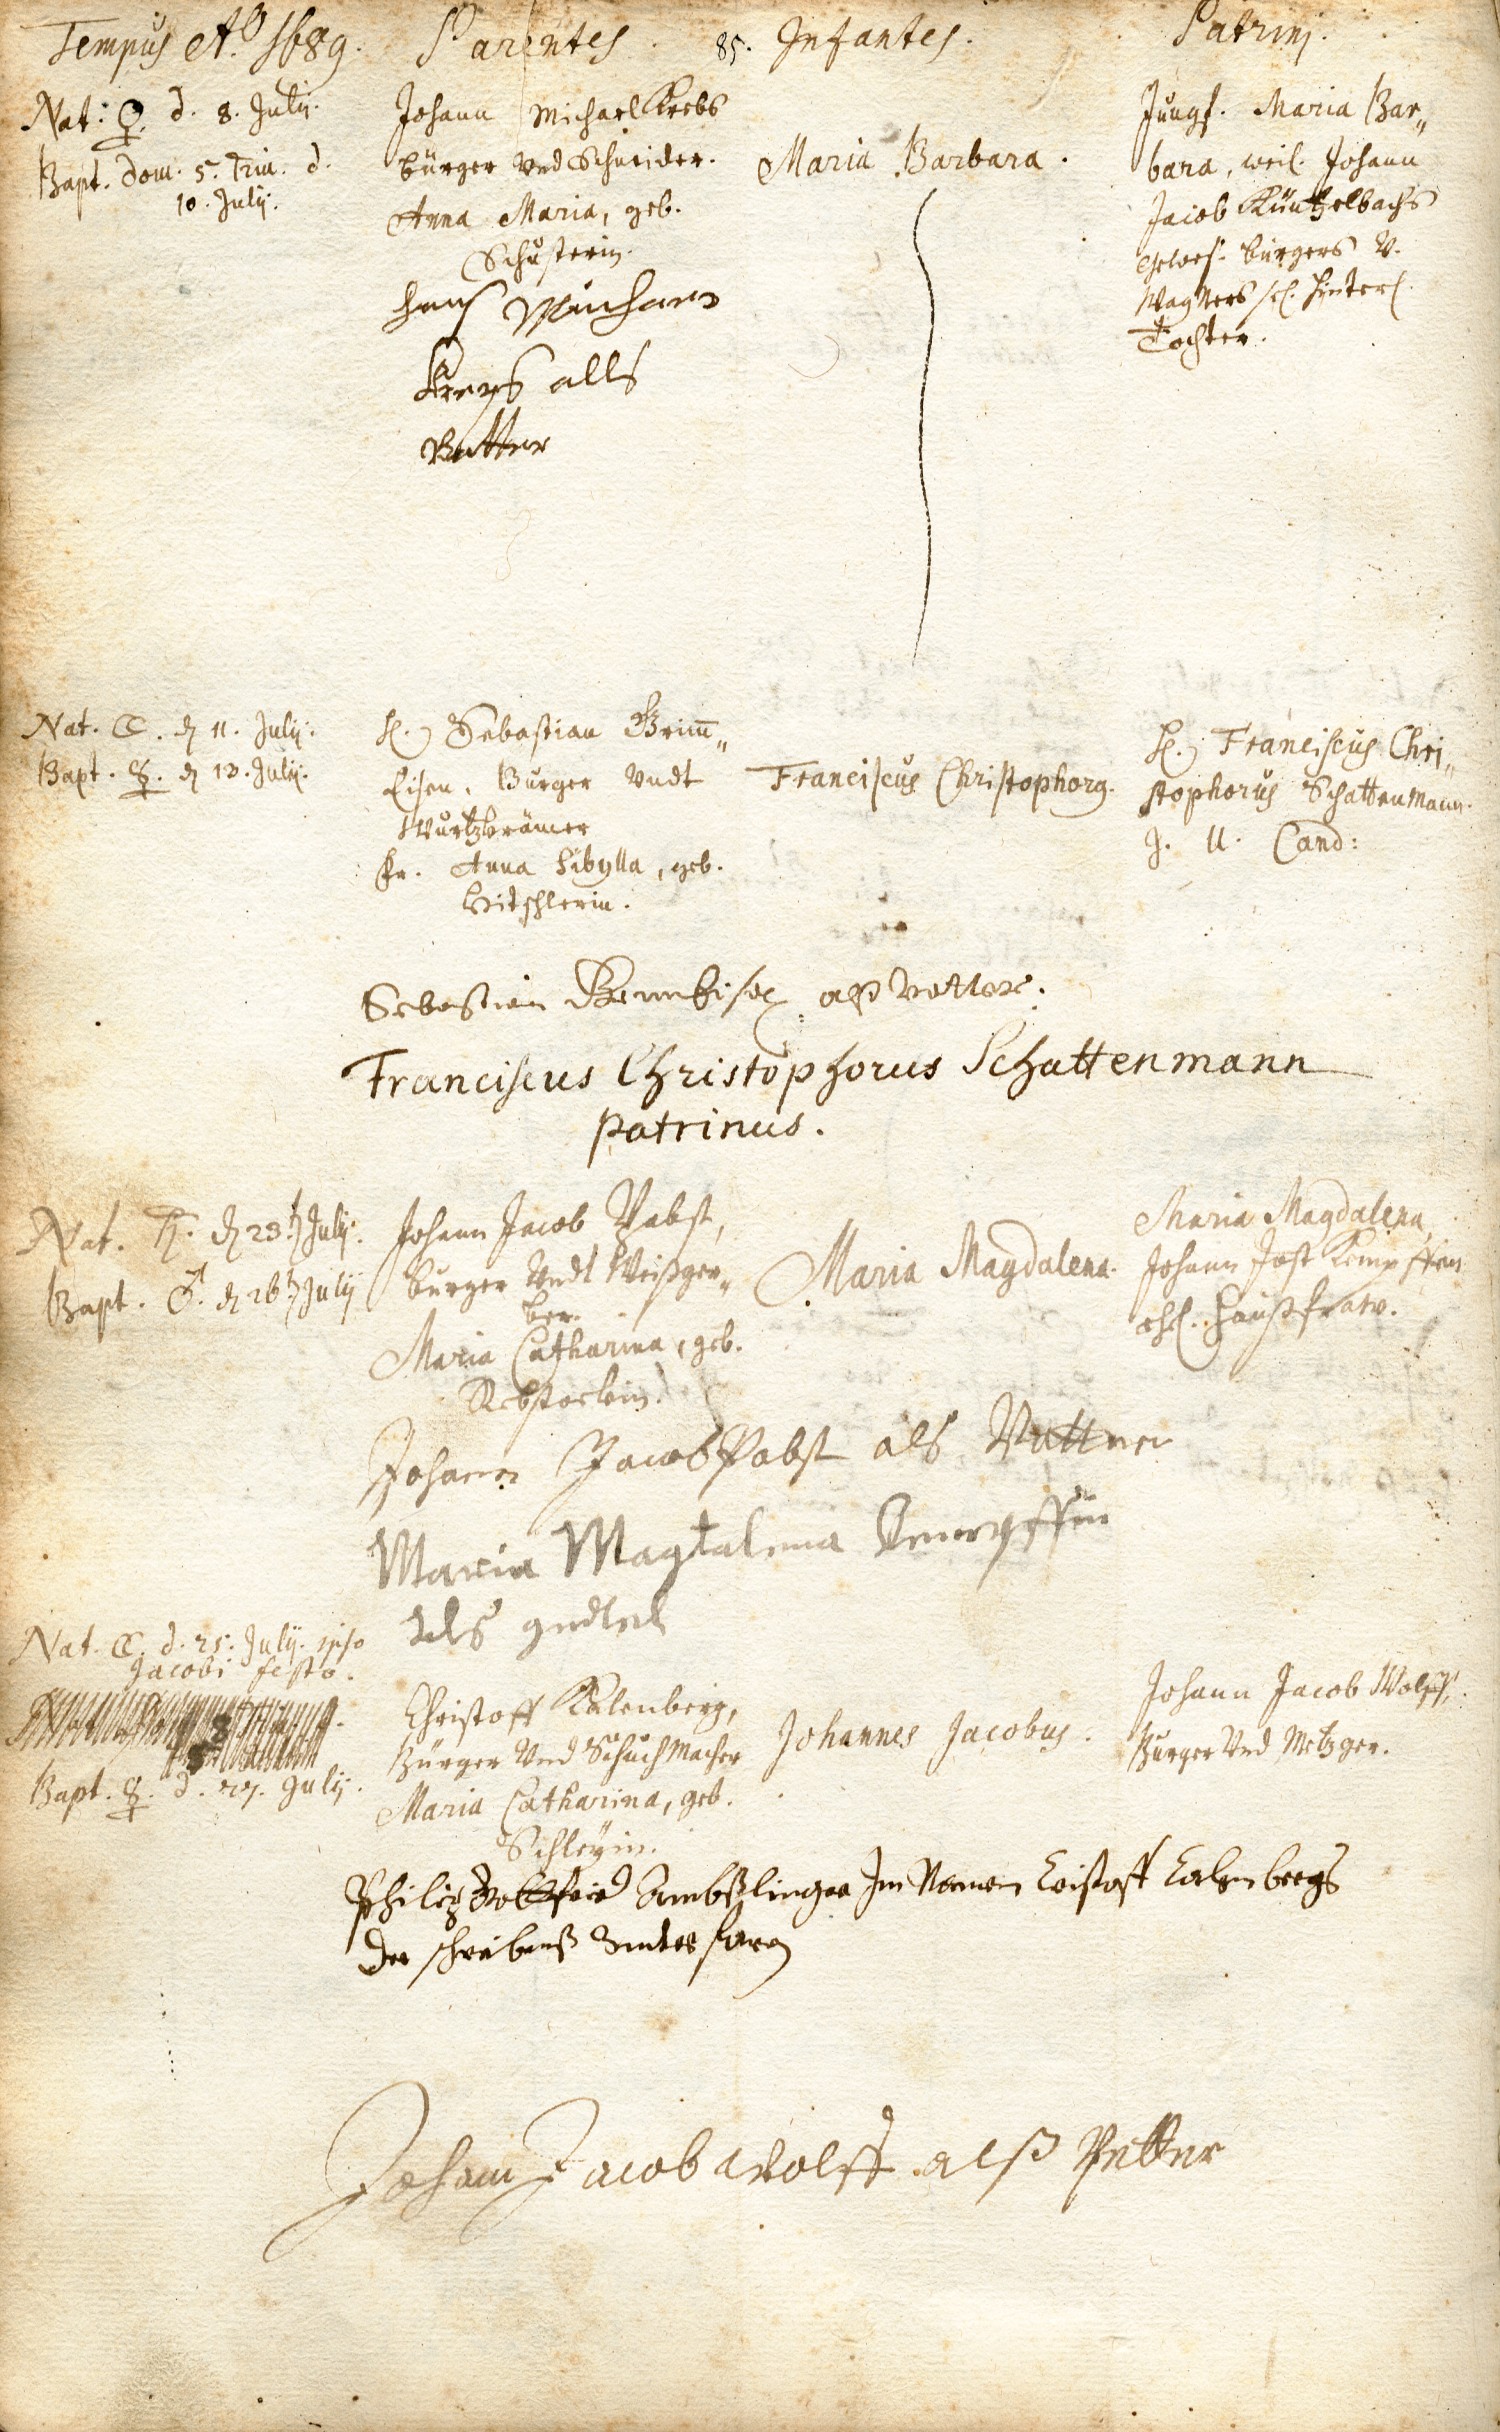 Tempus Ao. 1689. Parentes. 85. Infantes. Patrinj.
Nat: ♀. d. 8. Julij.
Bapt. Dom. 5. Trin. d.
10. Julij.
Johann Michael Krebs
bürger und Schneider.
Anna Maria, geb.
Schusterin.
Maria Barbara.
Jungf. Maria Bar„
bara, weil. Johann
Jacob Küntzelbachs
gewes. bürgers v.
Wagners sel. hinterl.
Tochter.
Hans Michael
Kreps alls
Vatter
Nat. ☾. d 11. Julij.
Bapt. ☿. d 13. Julij.
H. Sebastian Brim̄„
Eisen, Burger Undt
Wurtzkrämer
Fr. Anna Sibylla, geb.
Franciscus Christophorg.
H. Franciscus Chri„
stophorus Schattenmann.
J. U. Cand:
Sebastian als vatter.
Franciscus Christophorus Schattenmann
patrinus.
Nat. ♄. d 23. Julij.
Bapt. ♂. d 26. Julij
Johann Jacob Pabst,
burger Undt Weißger„
ber.
Maria Catharina, geb.
Rebstockin.
Maria Magdalena.
Maria Magdalena,
Johann Jost Kempffen
ehl. Haußfraw.
Johann Jacob Pabst als Vatter
Maria Magtalena Kempffin
als
Nat. ☾. d. 25. Julij. ipso
Jacobi festo.
Bapt. ☿. d. 27. Julij.
Christoff Kalenberg,
Bürger Und Schuchmacher
Maria Catharina, geb.
Schleÿin.
Johannes Jacobus.
Johann Jacob Wolff,
Burger Und Metzger.
Philip Im Namen Cristoff Calenbergs
der schreibens
Johann Jacob Wolff alß Petter